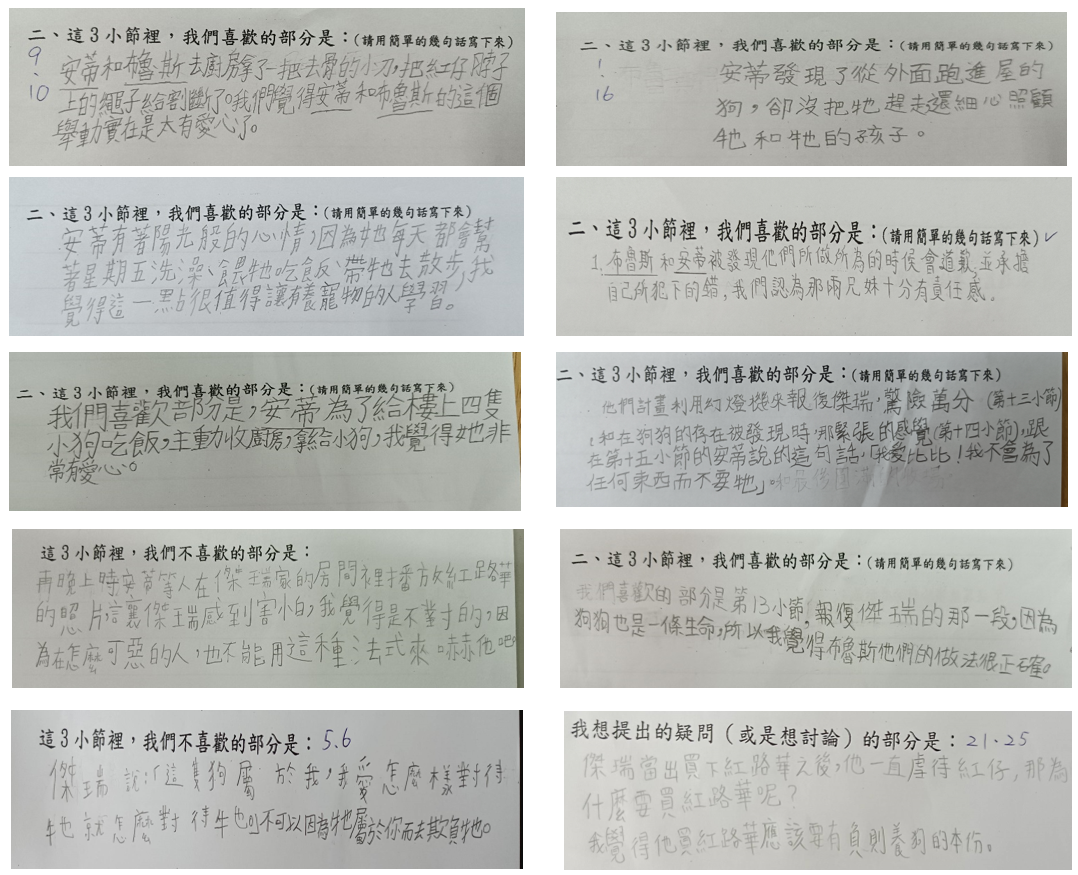 二、這3小節裡，我們喜歡的部分是：(請用簡單的幾句話寫下來)
9.10
安蒂和布魯斯去廚房拿了一把去骨的小刀，把紅仔脖子
上的繩子給割斷了。我們覺得安蒂和布魯斯的這個
舉動實在是太有愛心了。
二、這3小節裡，我們喜歡的部分是：(請用簡單的幾句話寫下來)
1.16
安蒂發現了從外面跑進屋的
狗，卻沒把牠趕走還細心照顧
牠和牠的孩子。
二、這3小節裡，我們喜歡的部分是：(請用簡單的幾句話寫下來)
安蒂有著陽光般的心情，因為她每天都會幫
著星期五洗澡、餵牠吃飯、帶牠去散步，我
覺得這一點很值得讓有養寵物的人學習。
二、這3小節裡，我們喜歡的部分是：(請用簡單的幾句話寫下來)✓
1.布魯斯和安蒂被發現他們所做所為的時侯會道歉，並承擔
自己所犯下的錯，我們認為那兩兄妹十分有責任感。
二、這3小節裡，我們喜歡的部分是：(請用簡單的幾句話寫下來)
我們喜歡部分是，安蒂為了給樓上四隻
小狗吃飯，主動收廚房，拿給小狗，我覺得她非
常有愛心。
二、這3小節裡，我們喜歡的部分是：(請用簡單的幾句話寫下來)
他們計畫利用幻燈機來報復傑瑞，驚險萬分(第十三小節)
、和在狗狗的存在被發現時，那緊張的感覺(第十四小節)，跟
在第十五小節的安蒂說的這句話，「我愛比比！我不會為了
任何東西而不要牠」。
這3小節裡，我們不喜歡的部分是：
再晚上時安蒂等人在傑瑞家的房間裡播放紅路華
的照片，讓傑瑞感到害怕，我覺得是不對的，因
為在怎麼可惡的人，也不能用這種法式來嚇他吧。
二、這3小節裡，我們喜歡的部分是：(請用簡單的幾句話寫下來)
我們喜歡的部分是第13小節，報復傑瑞的那一段，因為
狗狗也是一條生命，所以我覺得布魯斯他們的做法很正確。
這3小節裡，我們不喜歡的部分是：5.6
傑瑞說：「這隻狗屬於我，我愛怎麼樣對待
牠就怎麼對待牠」不可以因為牠屬於你而去欺負牠。
我想提出的疑問（或是想討論）的部分是：21.25
傑瑞當出買下紅路華之後，他一直虐待紅仔，那為
什麼要買紅路華呢？
我覺得他買紅路華應該要有負則養狗的本份。